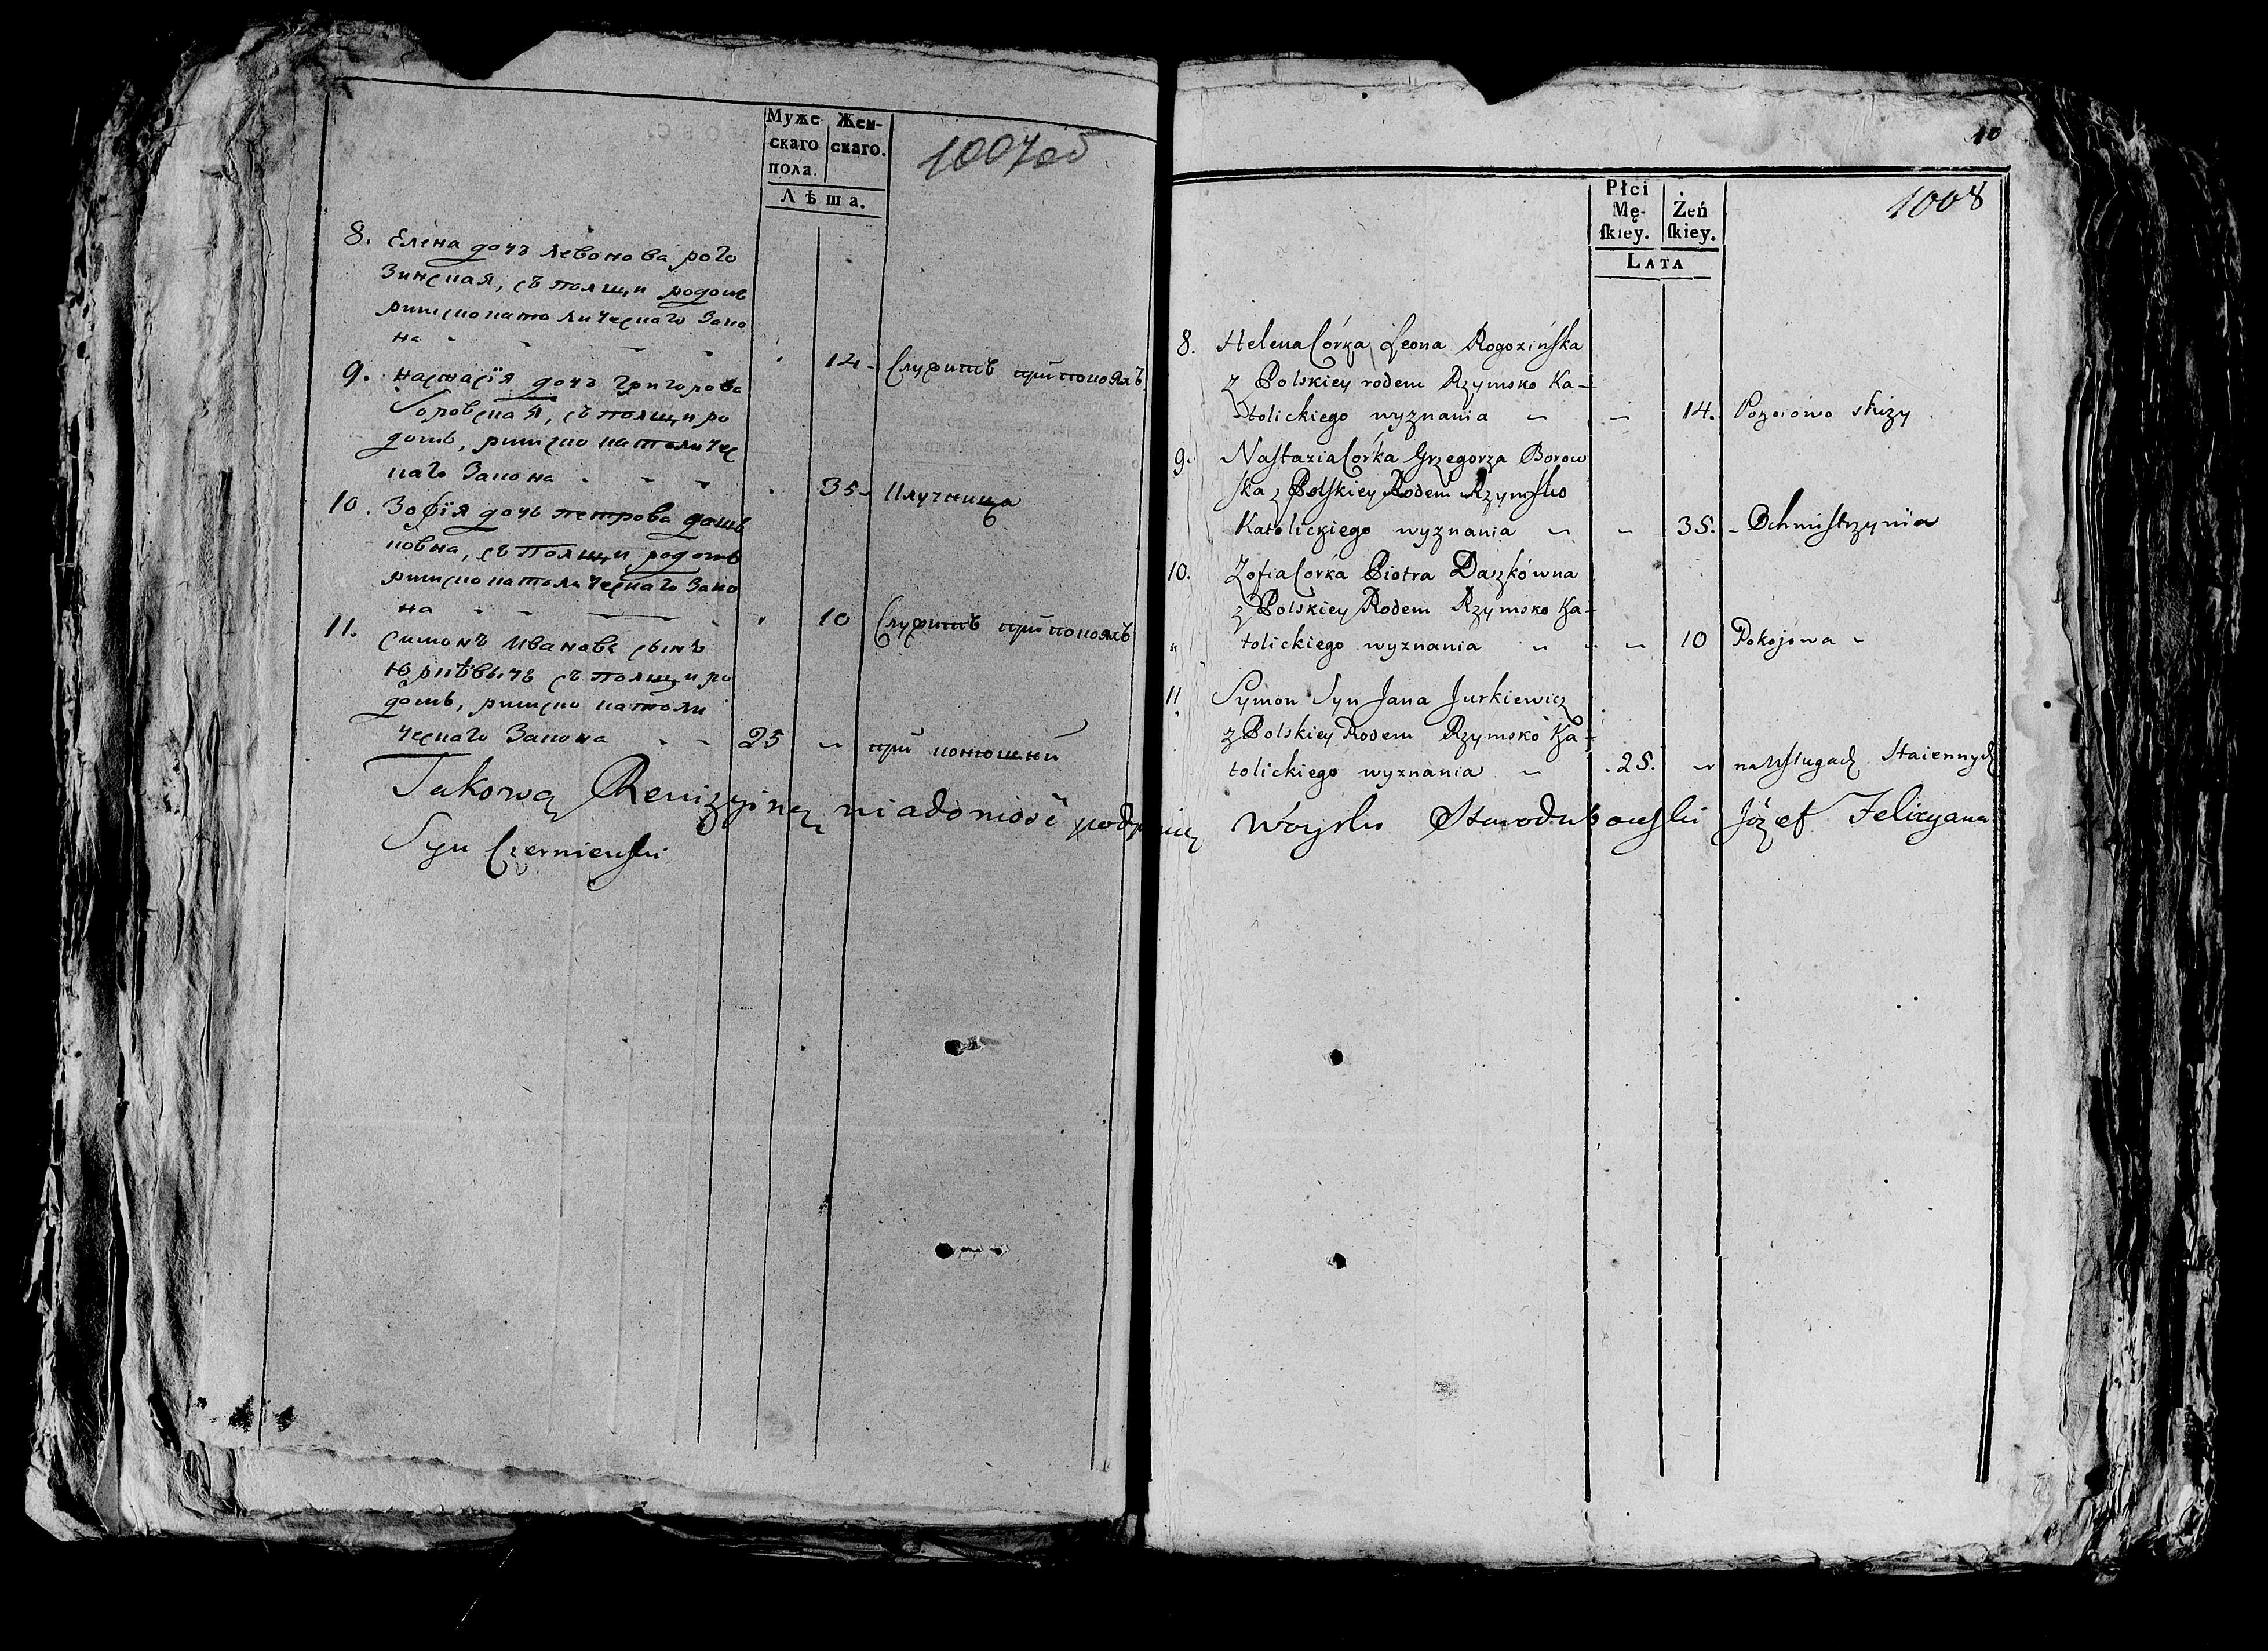 Муже Жен-
скаго скаго.
пола.
Лѣта.
1007об
8. Елена дочъ левонова рого
зинская, съ полщи родомъ
римскокатолическаго Зако
на 14 Служитъ при покояхъ
9. настасїя дочъ григорова
боровская, съ полщи ро
домъ, римскокатоличес
каго Закона 35 Ключница
10. Зофїя дочъ петрова дашъ
ковна, съ полщи родомъ
римскокатолическаго Зако
на 10 Служитъ при покояхъ
11. симонъ ивановъ сынъ
юркѣвичъ съ полщи ро
домъ, римско католи
ческаго Закона 25 при конюшни
Takową Rewizyiną wiadomość podpisuię Woyski Starodubowski Józef Felicyana
Syn Czerniewski
10
1008
Płci
Mę- Żeń
ſkiey. ſkiey.
LATA
8. Helena Córka Leona Rogozińſka
z Polskiey rodem Rzymsko Ka-
tolickiego wyznania 14. Pokoiowo służy
9. Naſtazia Córka Grzegorza Borow
ſka z Polſkiey Rodem Rzymſko
Katolickiego wyznania 35. Ochmiſtrzynia
10. Zofia Córka Piotra Daszkówna
z Polskiey Rodem Rzymsko Ka-
tolickiego wyznania 10 Pokojowa
11 Symon Syn Jana Jurkiewicz
z Polskiey Rodem Rzymsko Ka-
tolickiego wyznania 25. na Usługach Staiennych